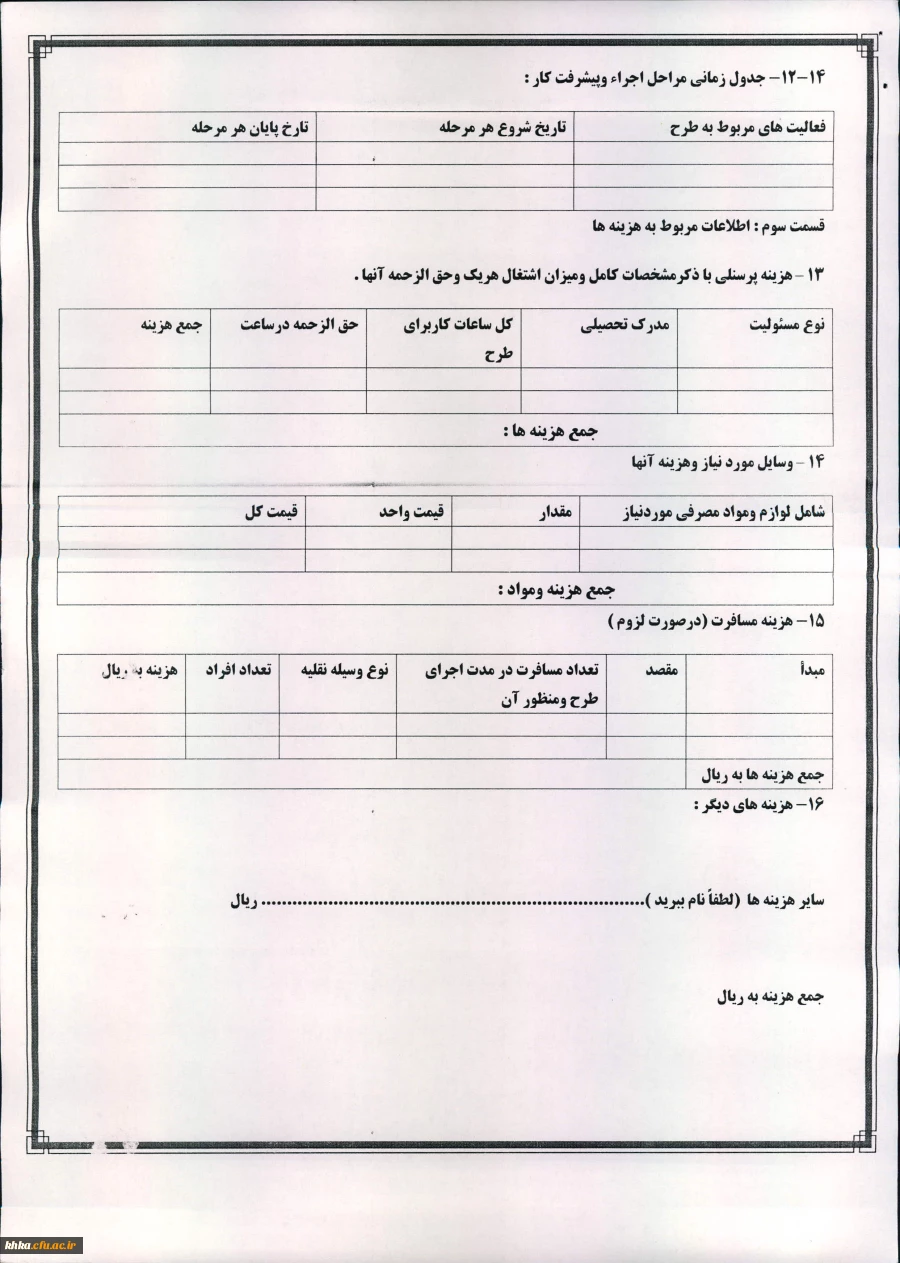 ۱۲-۱۴- جدول زمانی مراحل اجراء وپیشرفت کار :
فعالیت های مربوط به طرح	تاریخ شروع هر مرحله	تارخ پایان هر مرحله
قسمت سوم : اطلاعات مربوط به هزینه ها
۱۳ - هزینه پرسنلی با ذکرمشخصات کامل ومیزان اشتغال هریک وحق الزحمه آنها .
نوع مسئولیت	مدرک تحصیلی	کل ساعات کاربرای	حق الزحمه درساعت	جمع هزینه
طرح
جمع هزینه ها :
۱۴ - وسایل مورد نیاز وهزینه آنها
شامل لوازم ومواد مصرفی موردنیاز	مقدار	قیمت واحد	قیمت کل
جمع هزینه ومواد :
۱۵- هزینه مسافرت (درصورت لزوم )
مبدأ	مقصد	تعداد مسافرت در مدت اجرای	نوع وسیله نقلیه	تعداد افراد	هزینه به ریال
طرح ومنظور آن
جمع هزینه ها به ریال
۱۶- هزینه های دیگر :
سایر هزینه ها (لطفاً نام ببرید )........................................................................... ریال
جمع هزینه به ریال
khka.cfu.ac.ir